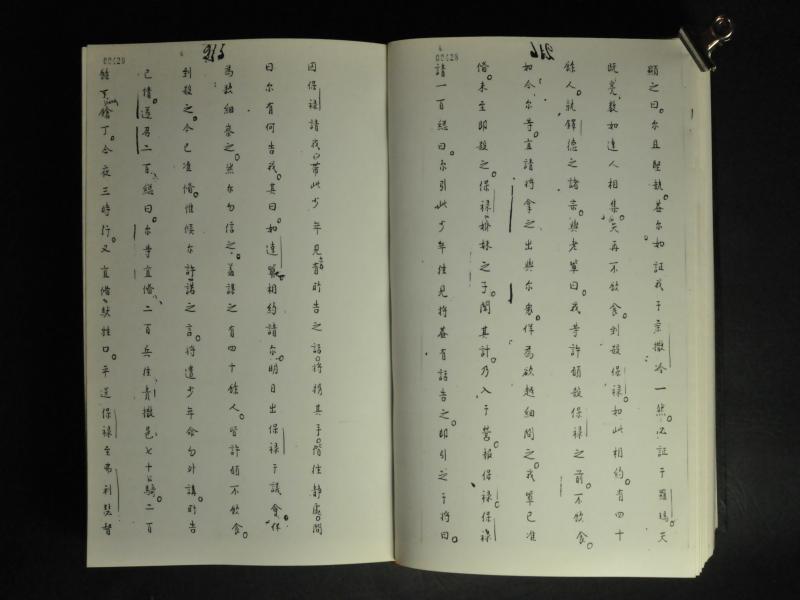 00428
216
顯之曰。尔且堅執。盖尔如証我于柔撒冷一然。必証于羅瑪。天
既亮。数如達人相集。矢再不飲食。到殺保祿。如此相約。有四十
餘人。就鐸德之諸宗與老軰曰。我等許頋殺保祿之前。不飲食。
如今尔等宜請將拿之出與尔衆。佯為欲越細問之。我軰已准
俻。未至即殺之。保祿姉妹之子聞其計。乃入于營。報保祿。保祿
請一百緫曰。尔引此少年往見将。盖有話告之。即引之于将曰。
215
因保祿請我帶此少年見有所告之話。將携其手。偕往静處。問
曰尔有何告我。其曰。如達軰相約請尔。明日出保祿于議會。佯
為愈細察之。然尔勿信之。盖謀之有四十餘人。皆許頋不飲食。
到殺之。今已准俻。惟候尔許諾之言。將遣少年命勿外講。所告
己情。遂召二百緫曰。尔等宜俻二百兵往責撒邑。七十騎。二百
鎗丁。今夜三時行。又宜俻馱牲口。平送保祿至弗利斯督